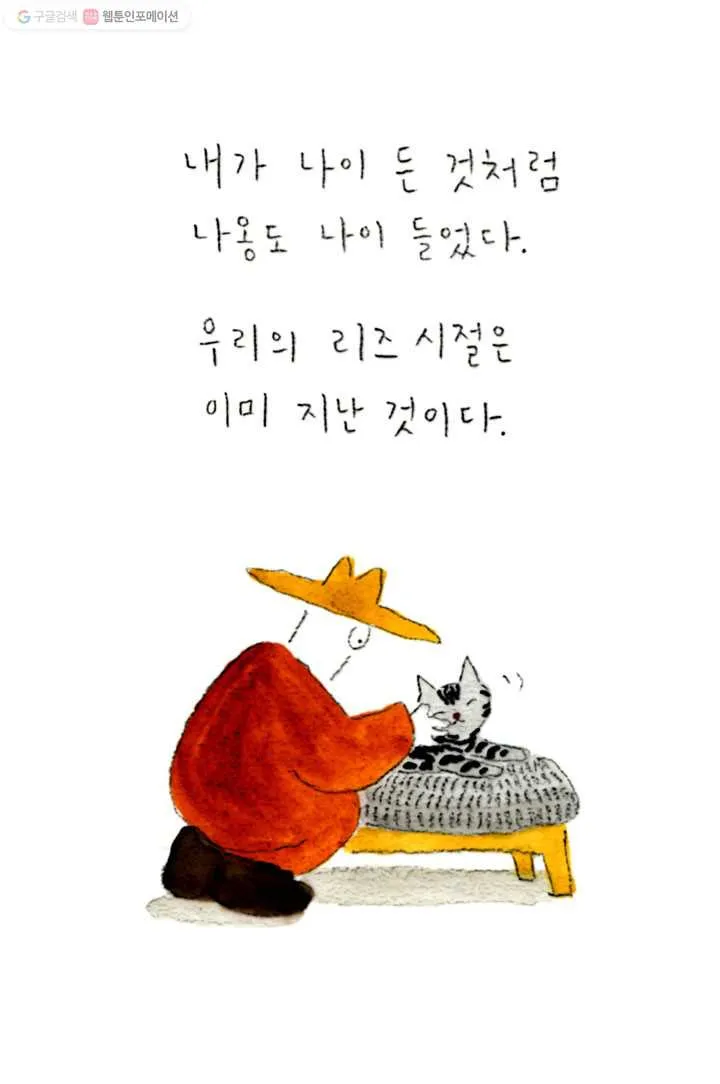 구글검색 웹툰인포메이션
내가 나이 든 것처럼
나옹도 나이 들었다.
우리의 리즈 시절은
이미 지난 것이다.